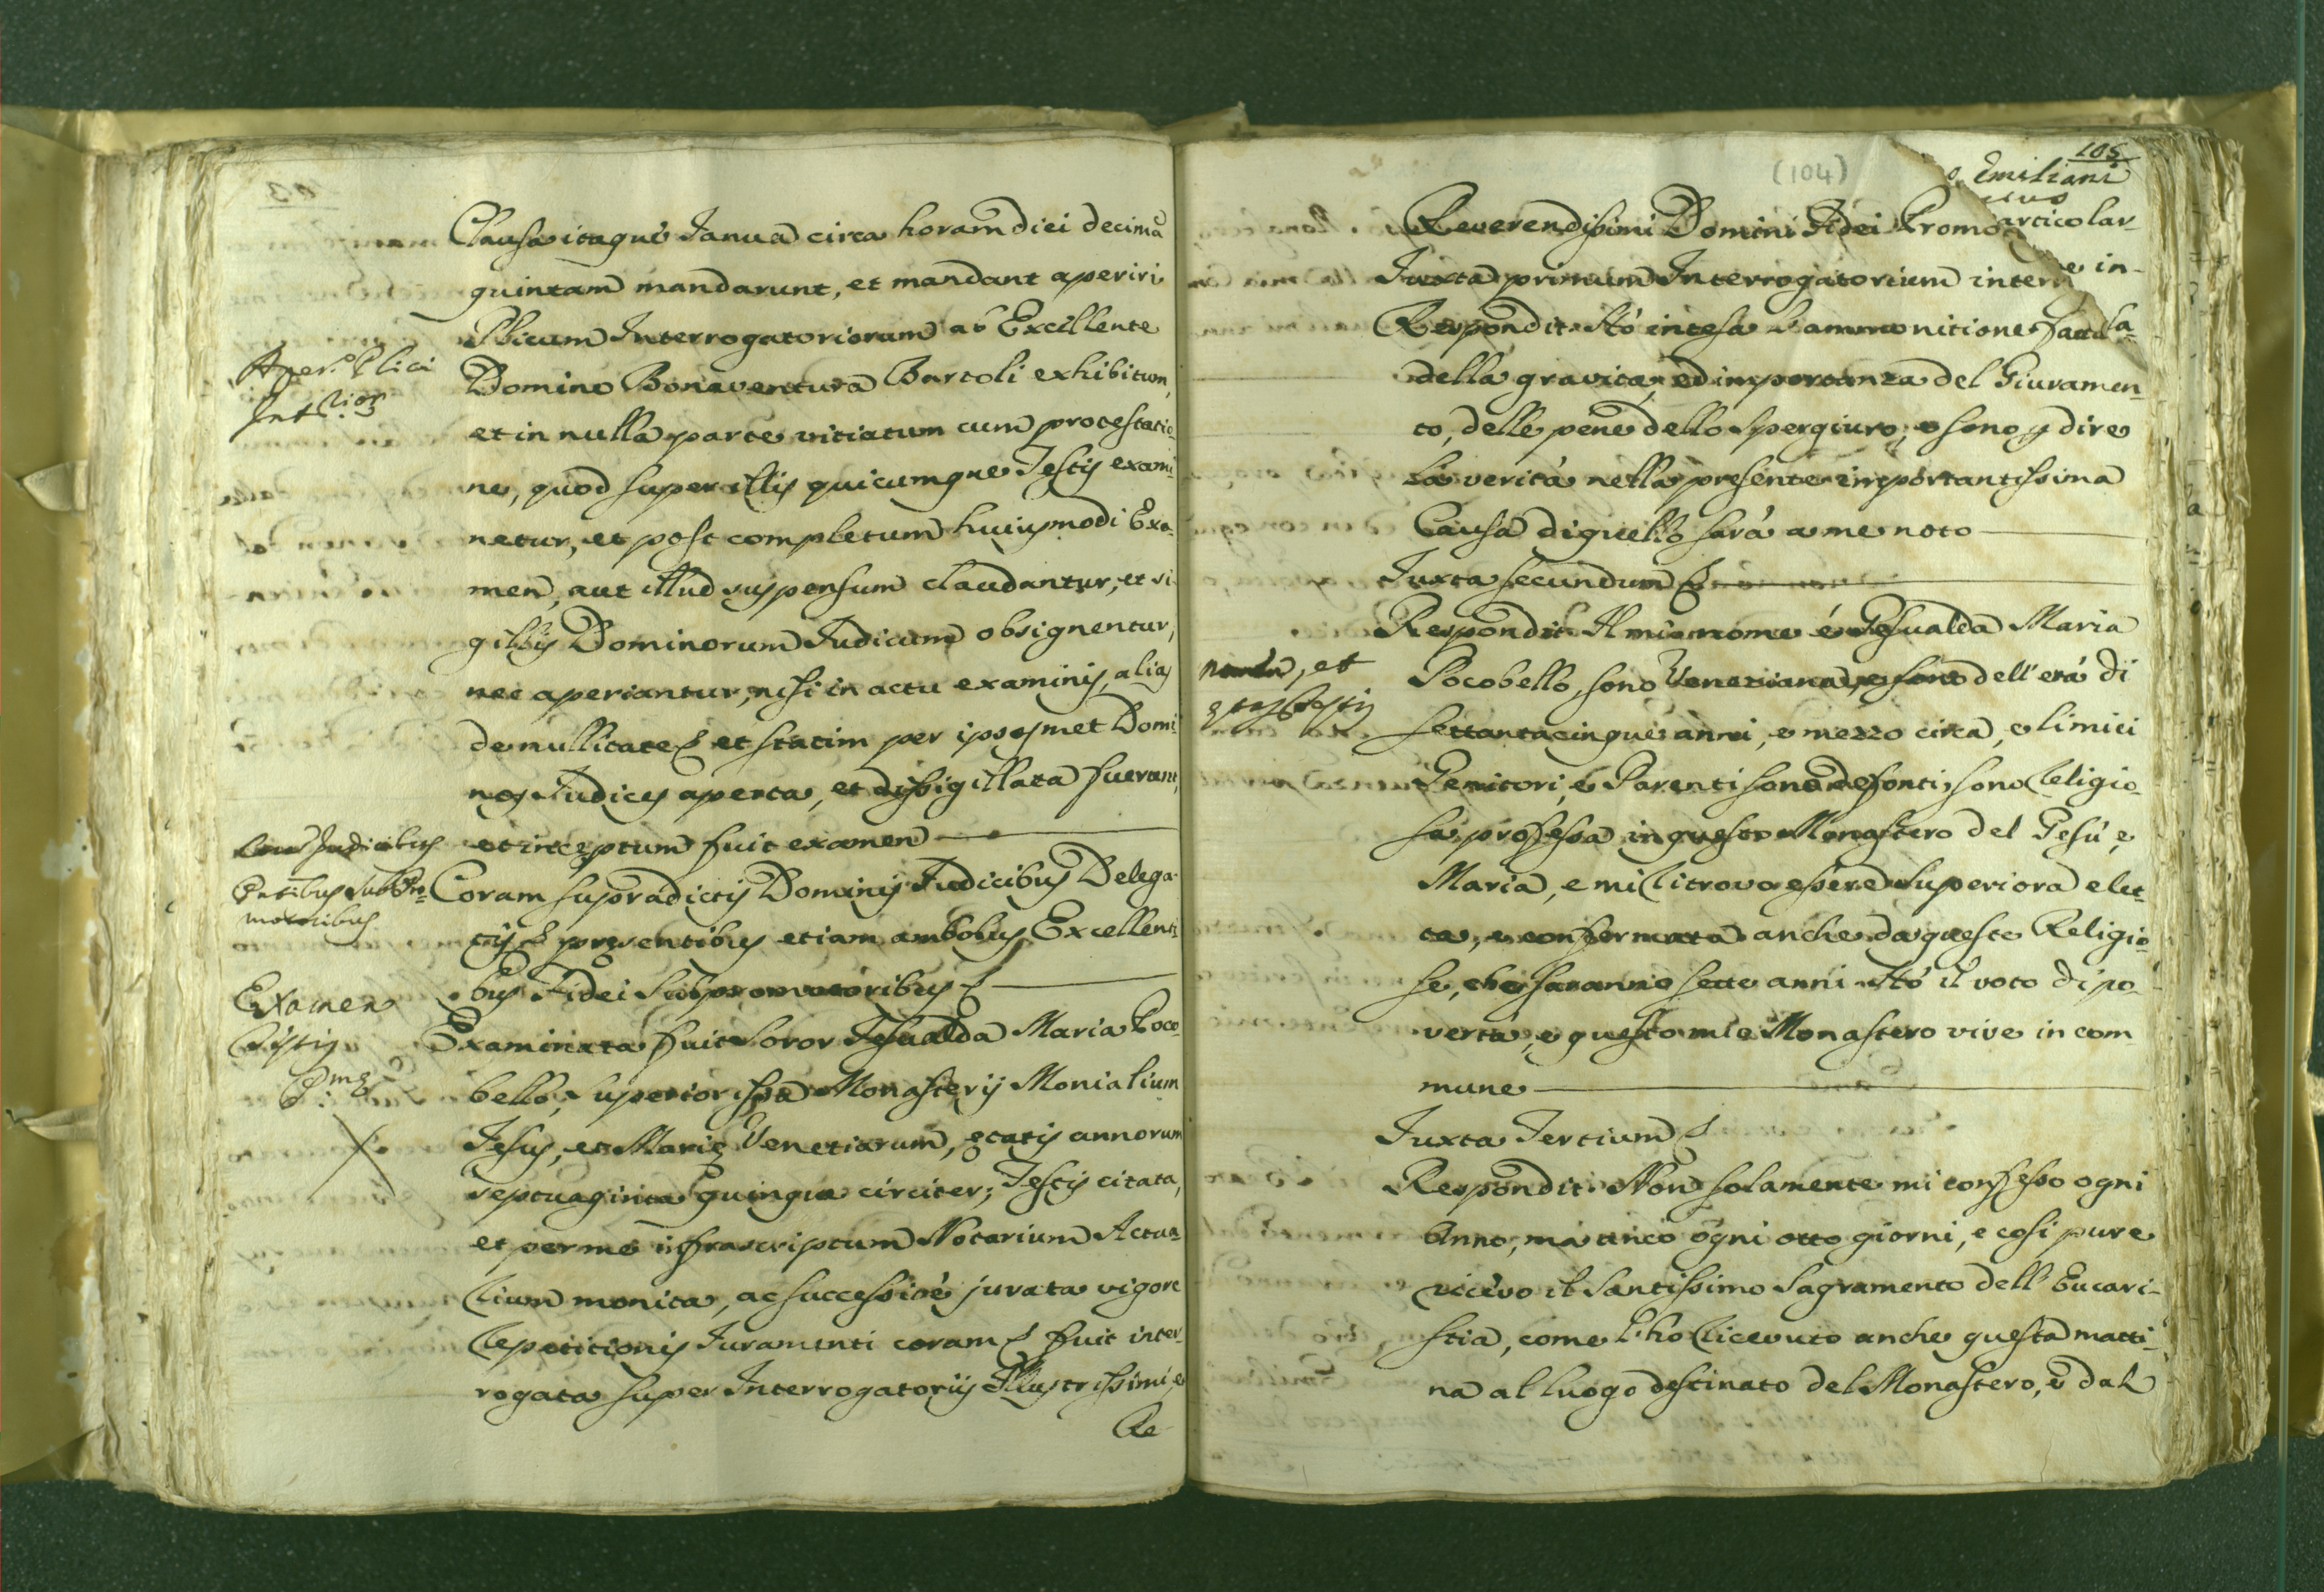 Clausa itaque Janua circa horam diei decimã
quintam mandarunt, et mandant aperiri
Plicum Interrogatoriorum ab Excellente
Domino Bonaventura Bartoli exhibitum,
et in nulla parte vitiatum cum protestatio-
ne, quod super illis quicumque Testis exami-
netur, et post completum huiusmodi Exa-
men, aut illud suspensum claudantur, et si-
gillis Dominorum Judicum obsignentur,
nec aperiantur, nisi in actu examinis, alias
de nullitate et statim per ipsosmet Domi-
nos Judices aperta, et dissigillata fuerunt,
et inceptum fuit examen
Coram supradictis Dominis Judicibus Delega-
tis presentibus etiam ambobus Excellenti-
bus Fidei Subpromotoribus
Examinata fuit Soror Gesualda Maria Poco-
bello, Superiorissa Monasterij Monialium
Jesus, et Marię Venetiarum, ętatis annorum
septuaginta quinque circiter; Testis citata,
et per me infrascriptum Notarium Actua-
rium monita, ac successivè jurata vigore
repetitionis Juramenti coram fuit inter-
rogata super Interrogatorijs Illustrissimi, e
Re-
Aper. Plici
Judicibus
Examen
Testis
105
(104)
Emiliani
Reverendissimi Domini Fidei Promo articolar-
Juxta primum Interrogatorium inter e in-
Respondit: Hò intesa l'ammonitione fatta
della gravità, ed importanza del Giuramen-
to, delle pene dello spergiuro, e sono p dire
la verità nella presente importantissima
Causa di quello sarà a me noto
Juxta secundum
Respondit: Il mio nome è Gesualda Maria
Pocobello, sono Veneziana, e sono dell'età di
settantacinque anni, e mezzo circa, e li miei
Genitori, e Parenti sono defonti, sono Religio-
sa professa in questo Monastero del Gesù, e
Maria, e mi ritrovo essere Superiora elet-
ta, e confermata anche da queste Religio-
se, che saranno sette anni. Hò il voto di po-
vertà, e questo mio Monastero vive in com-
mune
nomen, et
Juxta Tertium
Respondit: Non solamente mi confesso ogni
Anno, mà anco ogni otto giorni, e così pure
ricevo il Santissimo Sagramento dell'Eucari-
stia, come l'ho ricevuto anche questa matti-
na al luogo destinato del Monastero, e dal